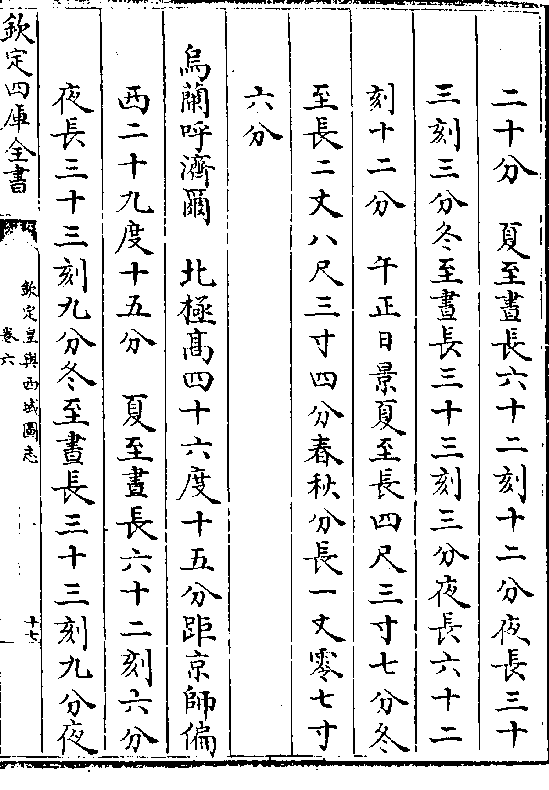 二十分　夏至晝長六十二刻十二分夜長三十
三刻三分冬至晝長三十三刻三分夜長六十二
刻十二分　午正日景夏至長四尺三寸七分冬
至長二丈八尺三寸四分春秋分長一丈零七寸
六分
烏蘭呼濟爾　北極高四十六度十五分距京師偏
西二十九度十五分　夏至晝長六十二刻六分
夜長三十三刻九分冬至晝長三十三刻九分夜
欽定四庫全書
欽定皇輿西域圖志
卷六
十七